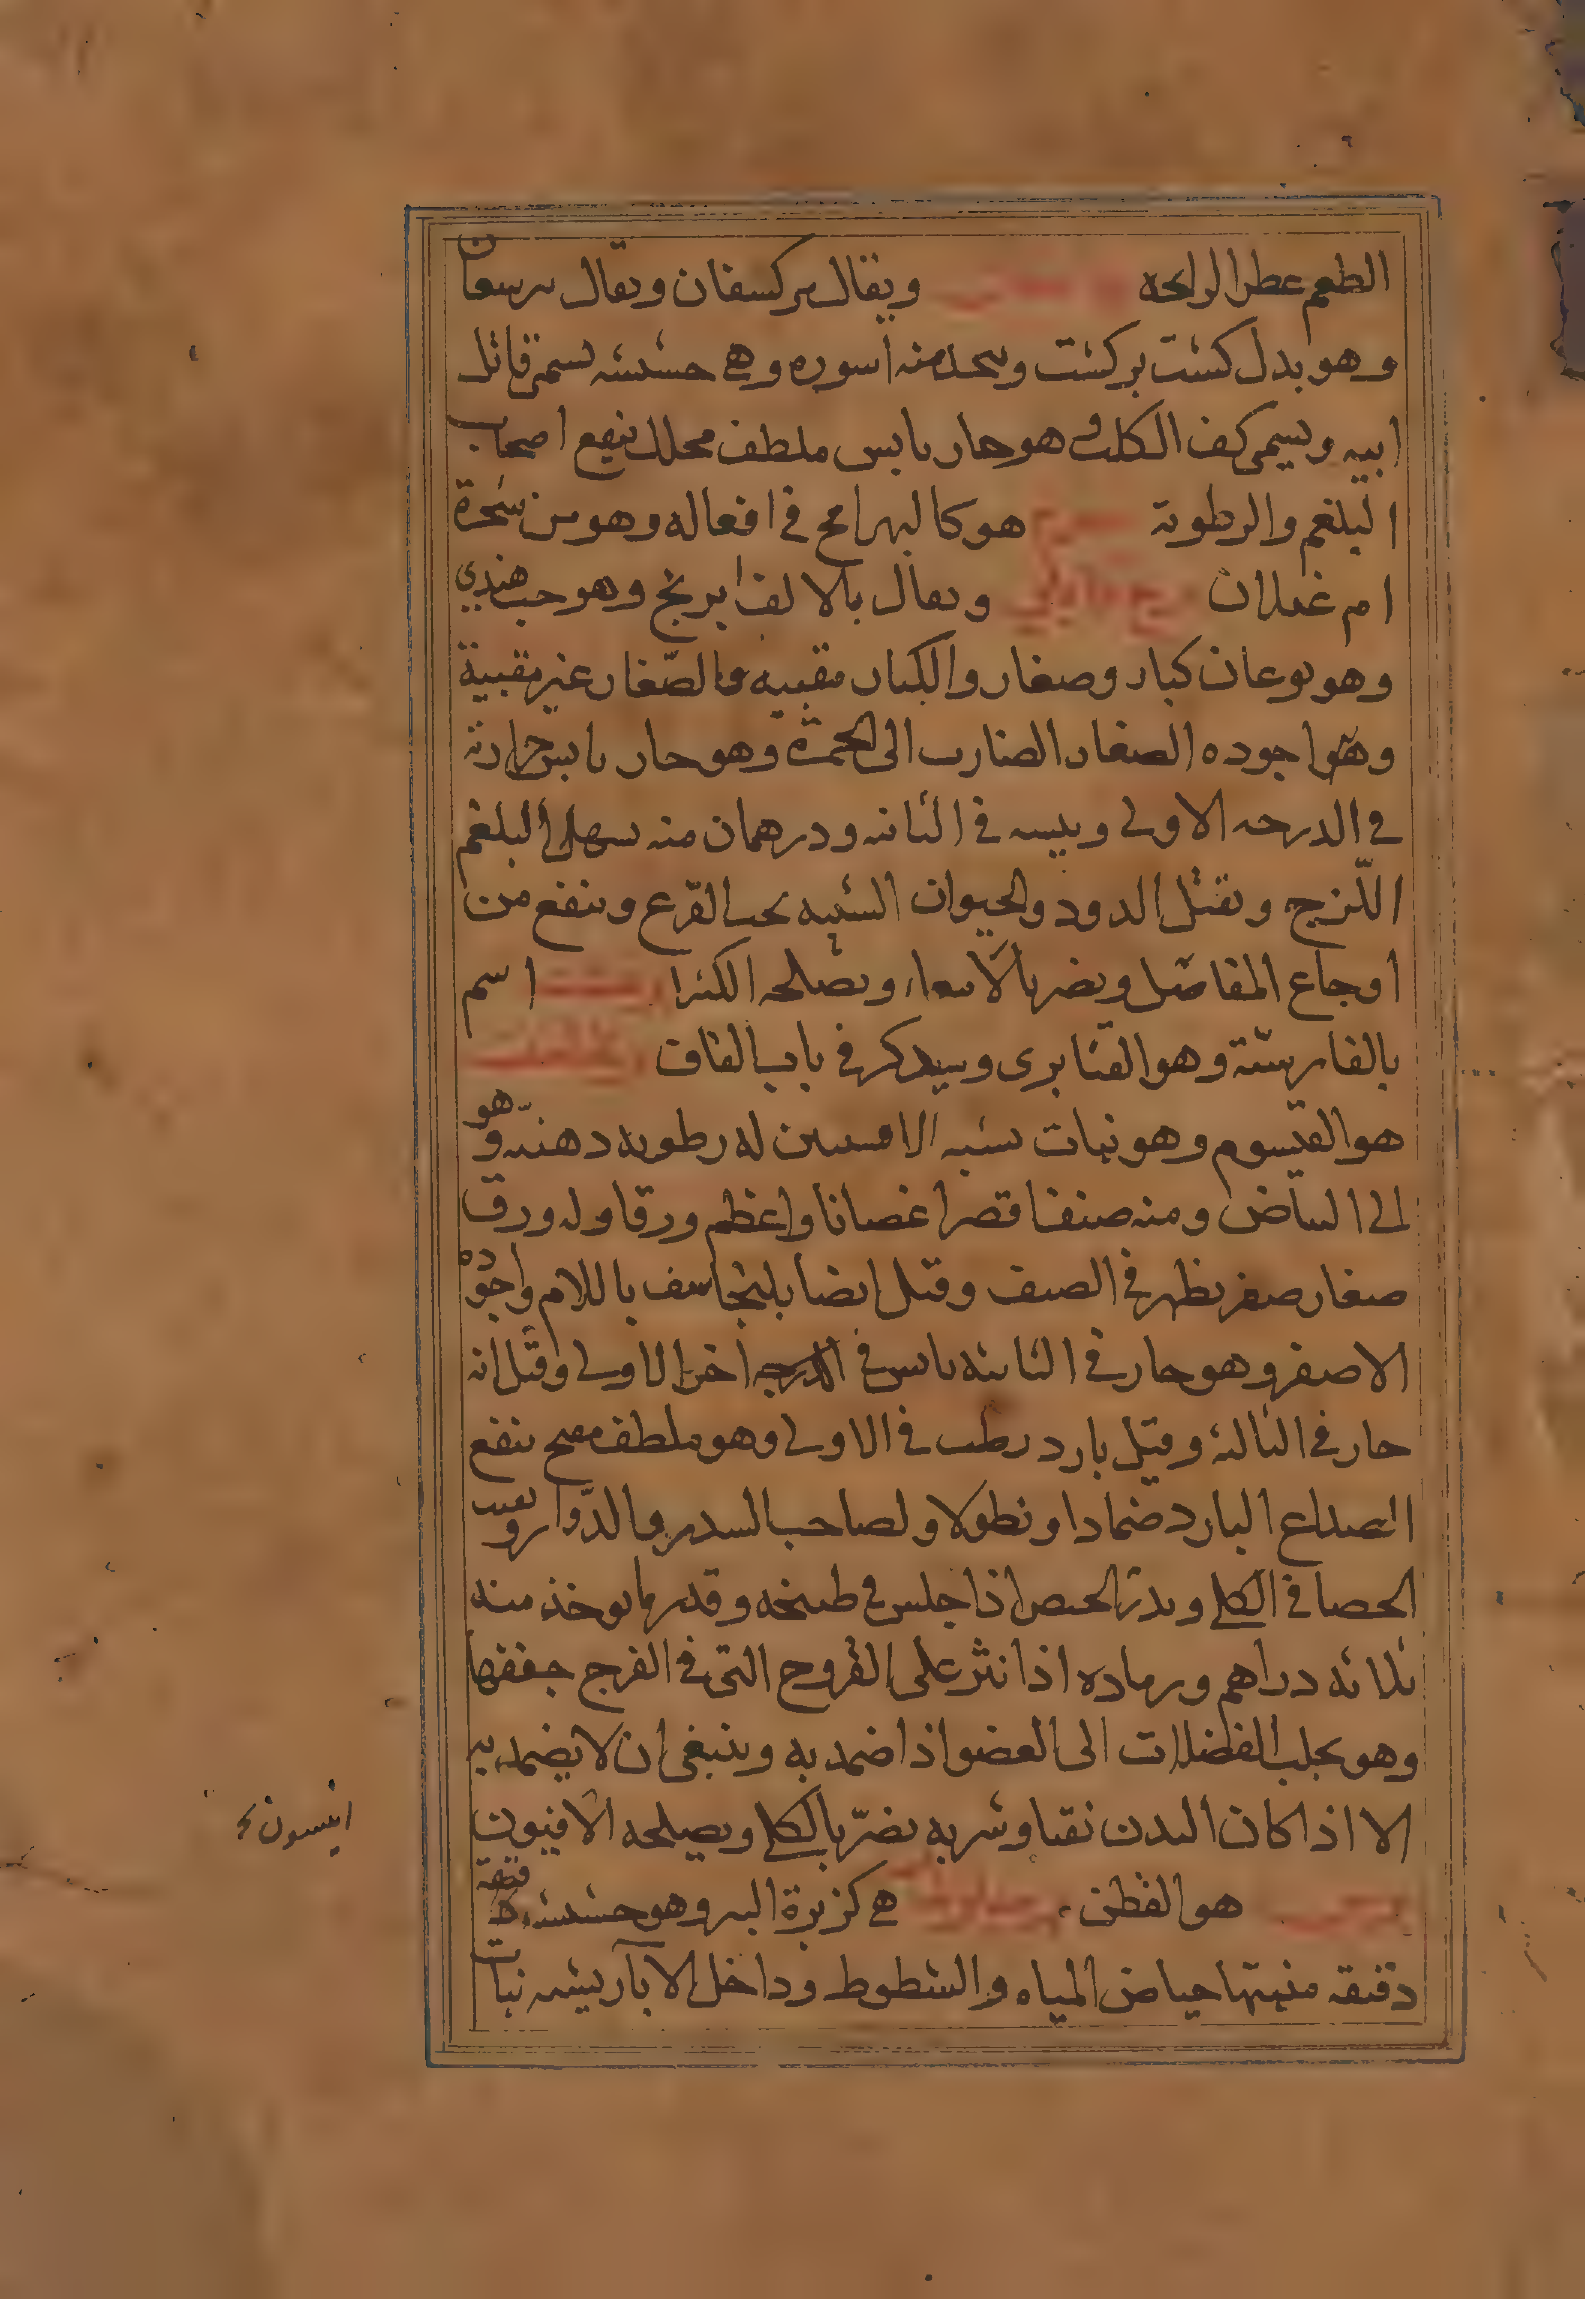 الطعم عطر الرايحه ويقال بركسفان ويقال برسعان
وهو بدل كشت بركشت ويتخذ منه اسوره وهي حشيشه تسمى قاتل
ابيه ويسمى كف الكلب وهو حار يابس ملطف محلل ينفع اصحاب
البلغم والرطوبة هو كالبهرامج في افعاله وهو من شجرة
ام غيلان ويقال بالالف ابرنج وهو حب هندي
وهو نوعان كبار وصغار والكبار مقببه والصغار غير مقببة
وهو اجوده الصغار الضارب الى الحمرة وهو حار يابس حرارته
في الدرجه الاولى ويبسه في الثانيه ودرهمان منه يسهل البلغم
اللزج ويقتل الدود والحيوان الشبيه بحب القرع وينفع من
اوجاع المفاصل ويضر بالامعاء ويصلحه الكثيرا اسم
بالفارسية وهو القنابرى وسيذكر في باب القاف
هو القيسوم وهو نبات يشبه الافسنتين له رطوبه دهنيه وهو
الى البياض ومنه صنف اقصر اغصانا واعظم ورقا وله ورق
صغار صفر يظهر في الصيف وقيل ايضا بلنجاسف باللام واجوده
الاصفر وهو حار في الثانيه يابس في الدرجه اخر الاولى وقيل انه
حار في الثالثة وقيل بارد رطب في الاولى وهو ملطف مفتح ينفع
الصداع البارد ضمادا ونطولا ولصاحب السدر والدوار ويفتت
الحصا في الكلى ويدر الحيض اذا جلس في طبيخه وقدر ما يوخذ منه
ثلاثه دراهم ورماده اذا نثر على القروح التي في الفرج جففها
وهو يجلب الفضلات الى العضو اذا ضمد به وينبغي ان لا يضمد به
الا اذا كان البدن نقيا وشربه يضر بالكلى ويصلحه الافيون
انيسون
هو القطن هي كزبرة البير وهو حشيشه
دقيقه منبتها حياض المياه والشطوط وداخل الابار يشبه نبات